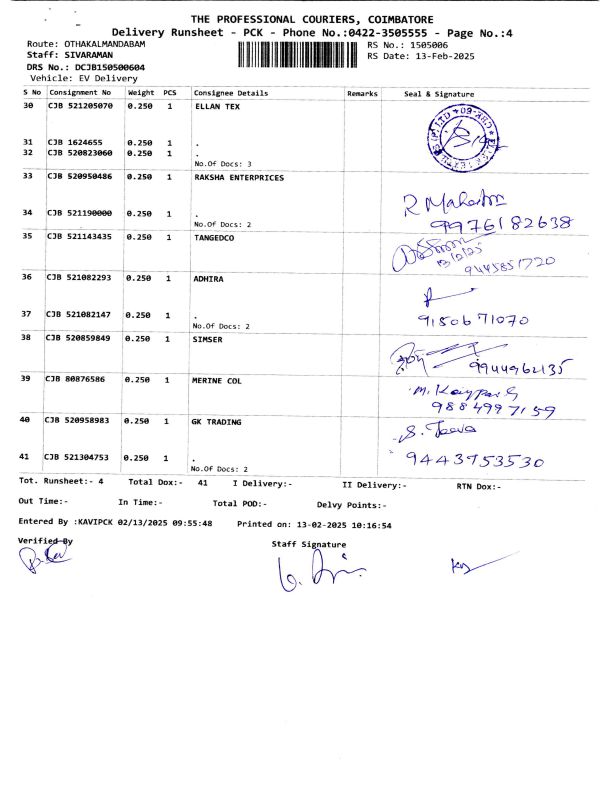 THE PROFESSIONAL COURIERS, COIMBATORE
Delivery Runsheet - PCK - Phone No.:0422-3505555 - Page No.:4
Route: OTHAKALMANDABAM RS No.: 1505006
Staff: SIVARAMAN RS Date: 13-Feb-2025
DRS No.: DCJB150500604
Vehicle: EV Delivery
S No Consignment No Weight PCS Consignee Details Remarks Seal & Signature
30 CJB 521205070 0.250 1 ELLAN TEX
31 CJB 1624655 0.250 1 .
32 CJB 520823060 0.250 1 .
No.Of Docs: 3
33 CJB 520950486 0.250 1 RAKSHA ENTERPRICES
34 CJB 521190000 0.250 1 .
No.Of Docs: 2
9976182638
35 CJB 521143435 0.250 1 TANGEDCO
13/2/25
9445851720
36 CJB 521082293 0.250 1 ADHIRA
37 CJB 521082147 0.250 1 .
9150671070
No.Of Docs: 2
38 CJB 520859849 0.250 1 SIMSER
9944962135
39 CJB 80876586 0.250 1 MERINE COL
9884997159
40 CJB 520958983 0.250 1 GK TRADING
41 CJB 521304753 0.250 1 .
9443753530
No.Of Docs: 2
Tot. Runsheet:- 4 Total Dox:- 41 I Delivery:- II Delivery:- RTN Dox:-
Out Time:- In Time:- Total POD:- Delvy Points:-
Entered By :KAVIPCK 02/13/2025 09:55:48 Printed on: 13-02-2025 10:16:54
Verified By Staff Signature